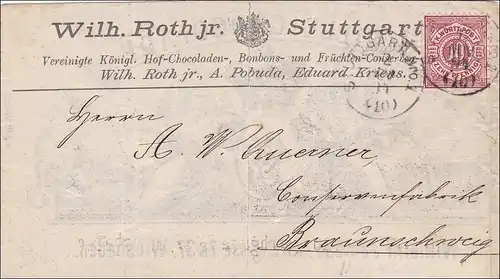 Wilh. Roth jr. Stuttgart
Vereinigte Königl. Hof-Chocoladen-, Bonbons- und Früchten-Conserven
Wilh. Roth jr., A. Pobuda, Eduard Kriens.
Herrn
A. W. Querner
Conservenfabrik
Braunschweig